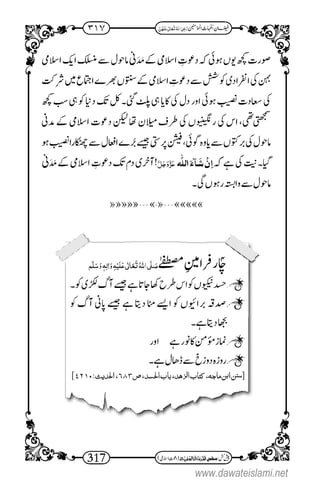 فیضانِ اُمَّہَاتُ الْمُؤْمِنِیْن ٣١٧
صورت کچھ یوں ہوئی کہ دعوتِ اسلامی کے مَدَنی ماحول سے مُنسلِک ایک اسلامی
بہن کی انفرادی کوشش سے دعوتِ اسلامی کے سنتوں بھرے اجتماع میں شرکت
کی سعادت نصیب ہوئی اور دل کی کایا ہی پلٹ گئی۔ کل تک دنیا کو ہی سب کچھ
سمجھتی تھی، اس کی رنگینیوں کی طرف میلان تھا لیکن دعوتِ اسلامی کے مدنی
ماحول کی برکتوں سے یاوہ گوئی، فیشن پرستی جیسے بُرے افعال سے چھٹکارا نصیب ہو
گیا۔ نیت کی ہے کہ اِنْ شَآءَ اللّٰہ عَزَّوَجَلَّ! آخری دم تک دعوتِ اسلامی کے مَدَنی
ماحول سے وابستہ رہوں گی۔
»»»»»...«»...«««««
چار فرامینِ مصطفےٰ صَلَّی اللہُ تَعَالٰی عَلَیْہِ وَاٰلِہٖ وَسَلَّم
حسد نیکیوں کو اس طرح کھا جاتا ہے جیسے آگ لکڑی کو۔
صدقہ برائیوں کو ایسے مٹا دیتا ہے جیسے پانی آگ کو
بجھا دیتا ہے۔
نماز مؤمن کا نور ہے اور
روزہ دوزخ سے ڈھال ہے۔
[سنن ابن ماجہ، کتاب الزھد، باب الحسد، ص٦٨٣، الحدیث: ٤٢١٠]
317
www.dawateislami.net